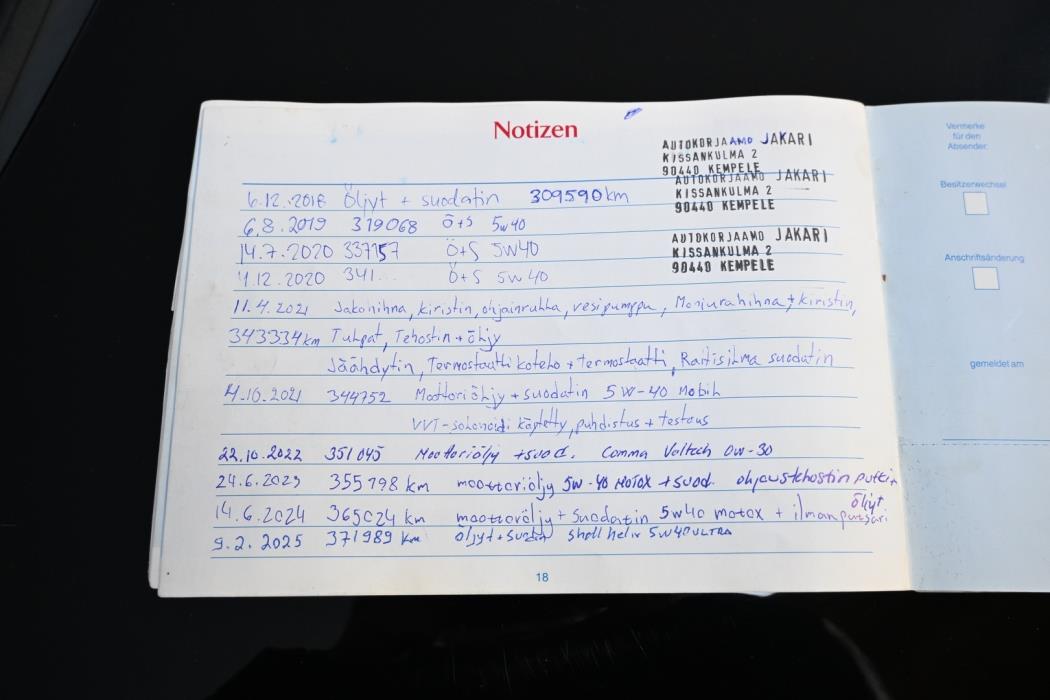 Notizen
AUTOKORJAAMO JAKARI
KISSANKULMA 2
90440 KEMPELE
AUTOKORJAAMO JAKARI
KISSANKULMA 2
90440 KEMPELE
6.12.2018 Öljyt + suodatin 309590km
6.8.2019 319068 Ö+S 5w40
14.7.2020 337157 Ö+S 5W40
AUTOKORJAAMO JAKARI
KISSANKULMA 2
90440 KEMPELE
4.12.2020 341... Ö+S 5W40
11.4.2021 Jakohihna, kiristin, ohjainrulla, vesipumppu, Moniurahihna + kiristin,
343334km Tulpat, Tehostin + öljy
Jäähdytin, Termostaatti kotelo + termostaatti, Raitisilma suodatin
4.10.2021 344752 Moottoriöljy + suodatin 5W-40 Mobil
VVT-solenoidi käytetty, puhdistus + testaus
22.10.2022 351045 Moottoriöljy + suod. Comma 0W-30
24.6.2023 355798 km moottoriöljy 5W-40 MOTOX + suod. ohjaustehostin putki +
öljyt
14.6.2024 365024 km moottoröljy + suodatin 5w40 motox + ilmanpuosari
9.2.2025 371989 km öljyt + shell helix 5W40 ULTRA
18
Vermerke
für den
Absender.
Besitzerwechsel
Anschriftsänderung
gemeldet am